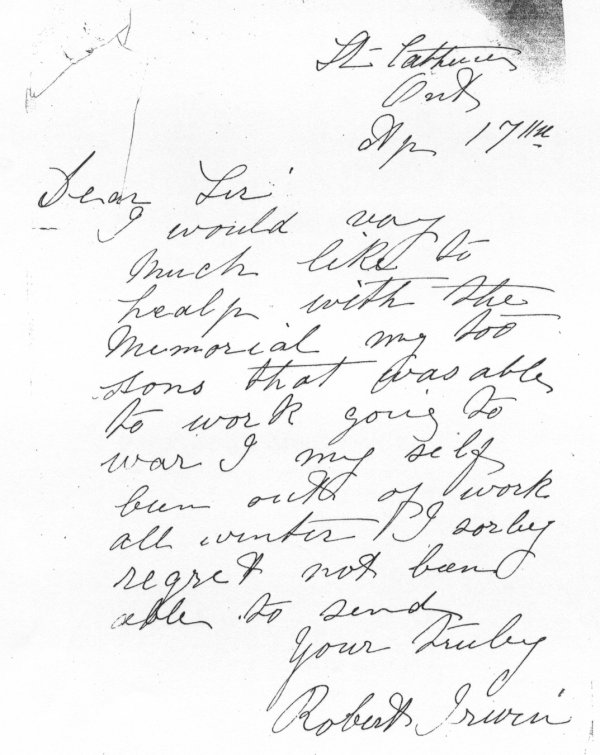 St Catherines
Ont
Ap 17th
Dear Sir
I would vary
much like to
healp with the
Memorial my too
sons that was able
to work going to
war I my self
bun out of work
all winter I sorley
regret not been
able to send
Your truley
Robert Irwin